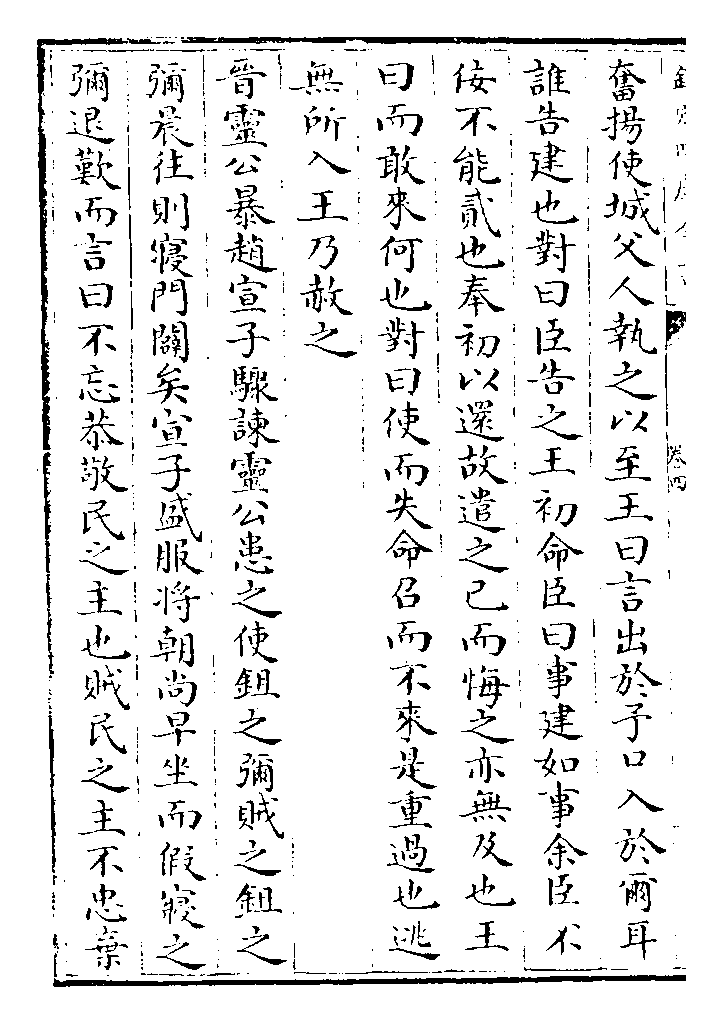 奮揚使城父人執之以至王曰言出於予口入於爾耳
誰告建也對曰臣告之王初命臣曰事建如事余臣不
佞不能貳也奉初以還故遣之已而悔之亦無及也王
曰而敢來何也對曰使而失命召而不來是重過也逃
無所入王乃赦之
晉靈公暴趙宣子驟諫靈公患之使鉏之彌賊之鉏之
彌晨往則寢門闢矣宣子盛服將朝尚早坐而假寢之
彌退歎而言曰不忘恭敬民之主也賊民之主不忠棄
卷四